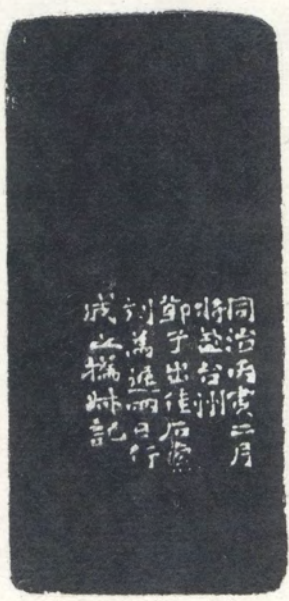 同治丙寅二月
將台州
鄭子出佳石索
刻為遲兩日行
成之撝叔記